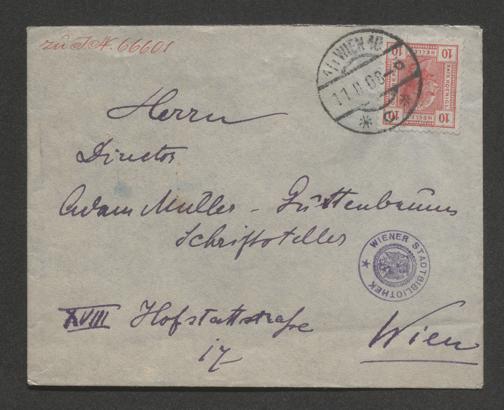 zu I.N. 66601
4/1 WIEN 10
11.II.08
10 HELLER 10
Herrn
Director
Adam Müller-Guttenbrunn
Schriftsteller
WIENER STADTBIBLIOTHEK
XVIII Hofstattstrafse
17
Wien